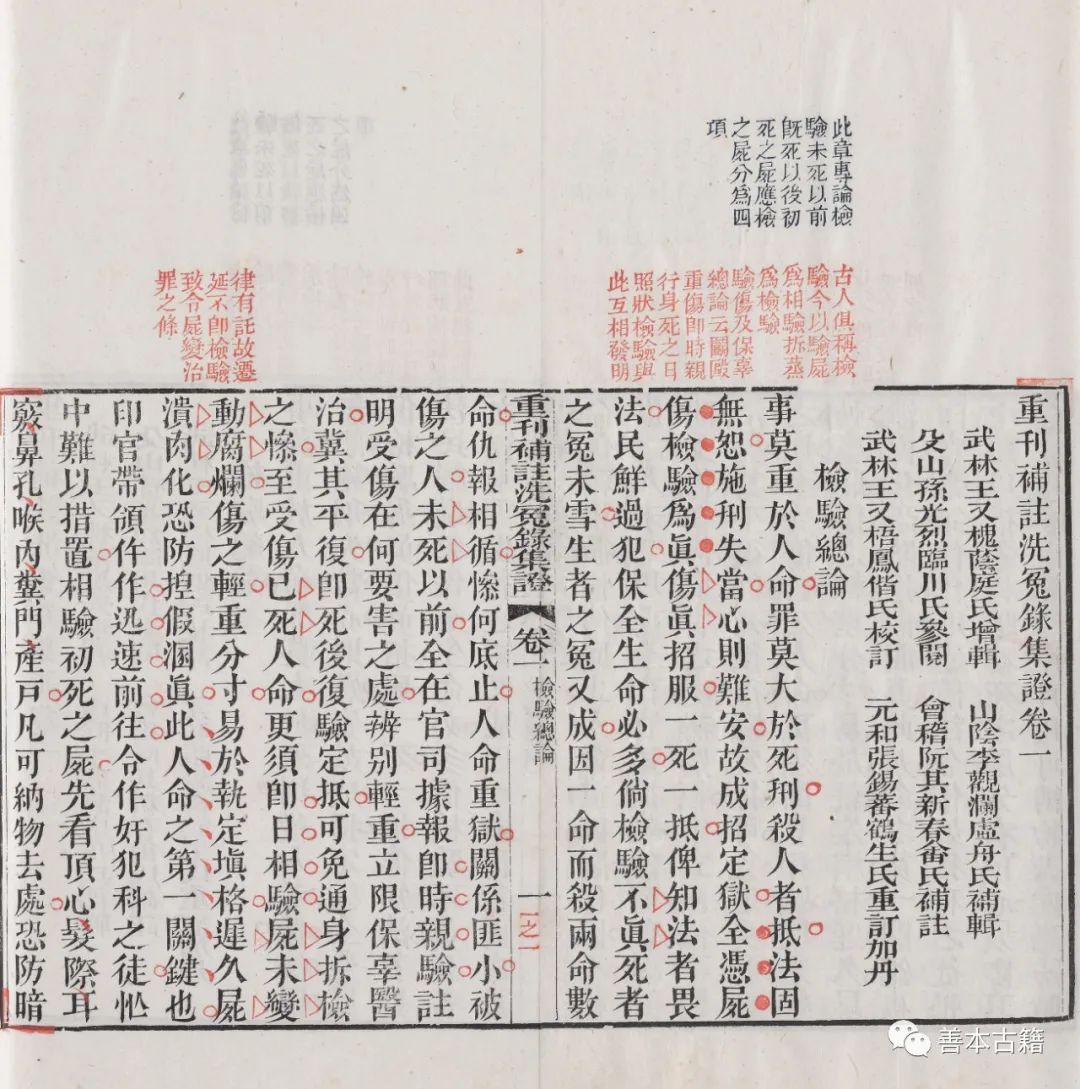 此章專論檢
驗未死以前
旣死以後初
死之屍應檢
之屍分爲四
項
古人俱稱檢
驗今以驗屍
爲相驗拆蒸
爲檢驗
驗傷及保辜
總論云鬭毆
重傷卽時親
行身死之日
照狀檢驗與
此互相發明
律有託故遷
延不卽檢驗
致令屍變治
罪之條
重刊補註洗冤錄集證卷一
武林王又槐蔭庭氏增輯 山陰李觀瀾虛舟氏補輯
殳山孫光烈臨川氏參閱 會稽阮其新春畬氏補註
武林王又梧鳳偕氏校訂 元和張錫蕃鶴生氏重訂加丹
檢驗總論
事莫重於人命罪莫大於死刑殺人者抵法固
無恕施刑失當心則難安故成招定獄全憑屍
傷檢驗爲眞傷眞招服一死一抵俾知法者畏
法民鮮過犯保全生命必多倘檢驗不眞死者
之冤未雪生者之冤又成因一命而殺兩命數
重刊補註洗冤錄集證 卷一 檢驗總論 一 一之一
命仇報相循慘何底止人命重獄關係匪小被
傷之人未死以前全在官司據報卽時親驗註
明受傷在何要害之處辨别輕重立限保辜醫
治冀其平復卽死後復驗定抵可免通身拆檢
之慘至受傷已死人命更須卽日相驗屍未變
動腐爛傷之輕重分寸易於執定塡格遲久屍
潰肉化恐防揑假溷眞此人命之第一關鍵也
印官帶領仵作迅速前往令作奸犯科之徒忙
中難以措置相驗初死之屍先看頂心髮際耳
竅鼻孔喉內糞門產戸凡可納物去處恐防暗
善本古籍